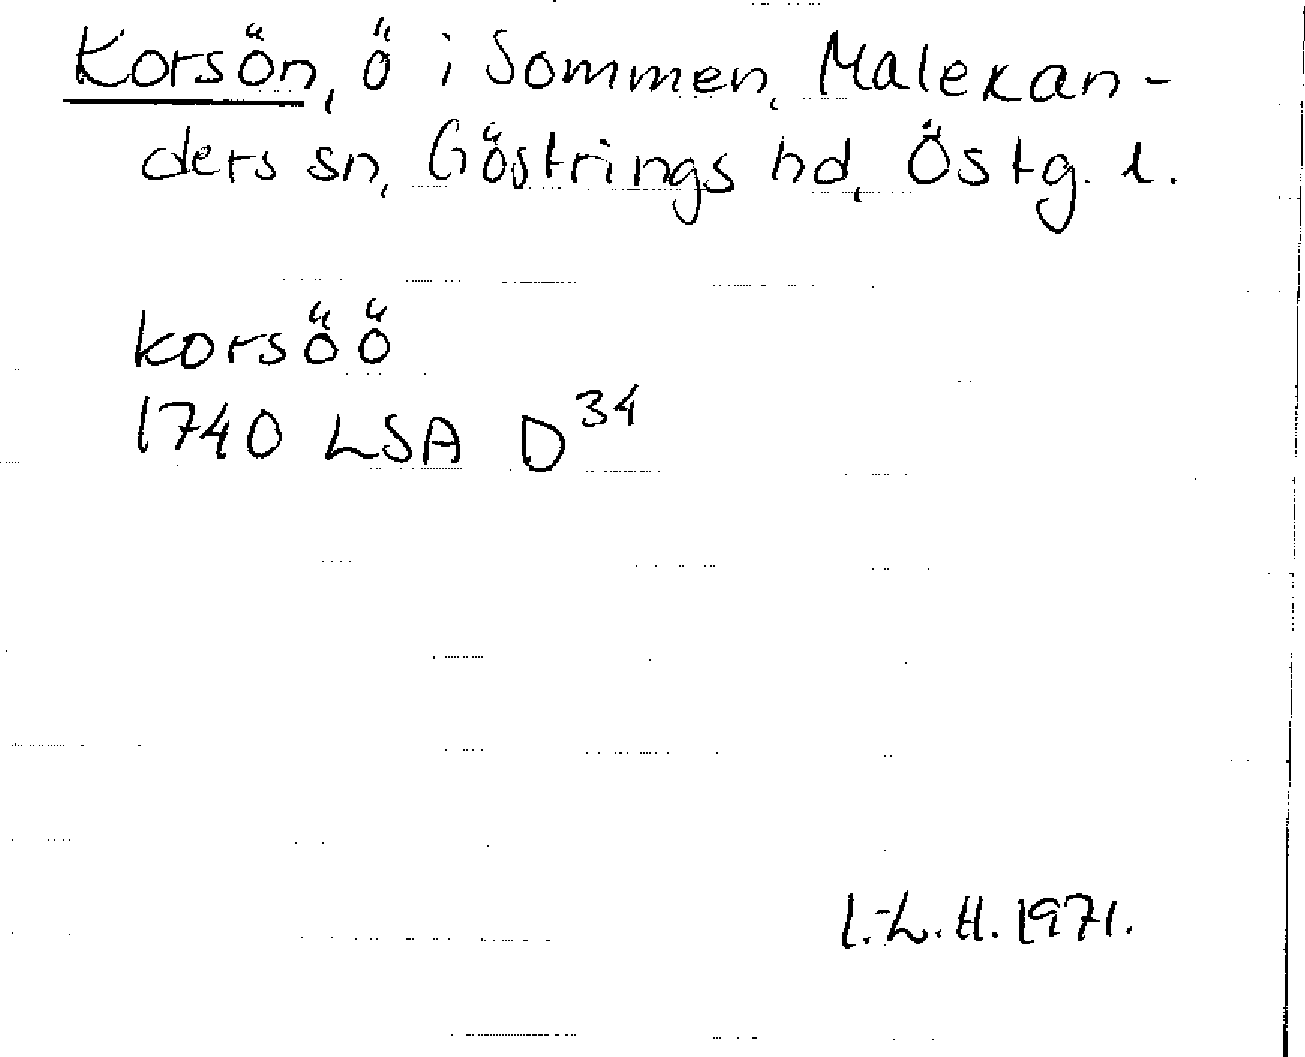 Korsön, ö i Sommen, Malexan-
ders sn, Göstrings hd, Östg. l.
korsöö
1740 LSA D³⁴
I.-L. H. 1971.